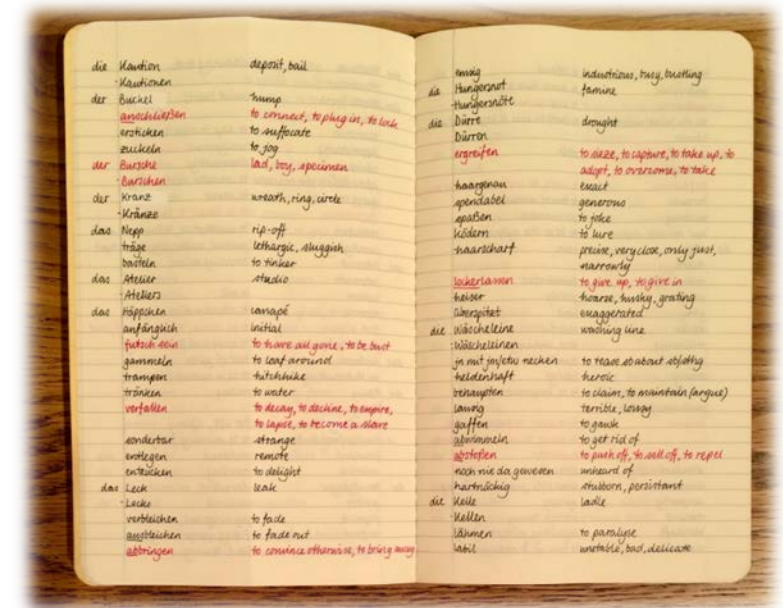 die Kaution deposit, bail
-Kautionen
der Buckel hump
anschließen to connect, to plug in, to lock
ersticken to suffocate
zuckeln to jog
der Bursche lad, boy, specimen
-Burschen
der Kranz wreath, ring, circle
-Kränze
das Nepp rip-off
träge lethargic, sluggish
basteln to tinker
das Atelier studio
-Ateliers
das Häppchen canapé
anfänglich initial
futsch sein to have all gone, to be bust
gammeln to loaf around
trampen hitchhike
tränken to water
verfallen to decay, to decline, to expire,
to lapse, to become a slave
sonderbar strange
entlegen remote
entzücken to delight
das Leck leak
-Lecks
verbleichen to fade
ausbleichen to fade out
abbringen to convince otherwise, to bring away
emsig industrious, busy, bustling
die Hungersnot famine
-Hungersnöte
die Dürre drought
Dürren
ergreifen to seize, to capture, to take up, to
adopt, to overcome, to take
haargenau exact
spendabel generous
spaßen to joke
ködern to lure
haarscharf precise, very close, only just,
narrowly
lockerlassen to give up, to give in
heiser hoarse, husky, grating
überspitzt exaggerated
die Wäscheleine washing line
-Wäscheleinen
jn mit jm/etw necken to tease sb about sb/sthg
heldenhaft heroic
behaupten to claim, to maintain (argue)
lausig terrible, lousy
gaffen to gawk
abwimmeln to get rid of
abstoßen to push off, to sell off, to repel
noch nie da gewesen unheard of
hartnäckig stubborn, persistant
die Kelle ladle
-Kellen
lähmen to paralyse
labil unstable, bad, delicate